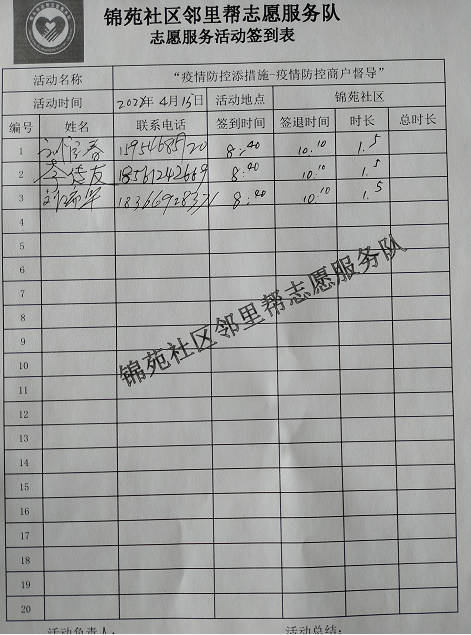 锦苑社区邻里帮志愿服务队
志愿服务活动签到表
活动名称 “疫情防控添措施-疫情防控商户督导”
活动时间 2022年4月15日 活动地点 锦苑社区
编号 姓名 联系电话 签到时间 签退时间 时长 总时长
1 8:40 10:10 1.5
2 18561242669 8:40 10:10 1.5
3 8:40 10:10 1.5
4
5
6
7
8
9
10
11
12
13
14
15
16
17
18
19
20
锦苑社区邻里帮志愿服务队
活动负责人: 活动总结: